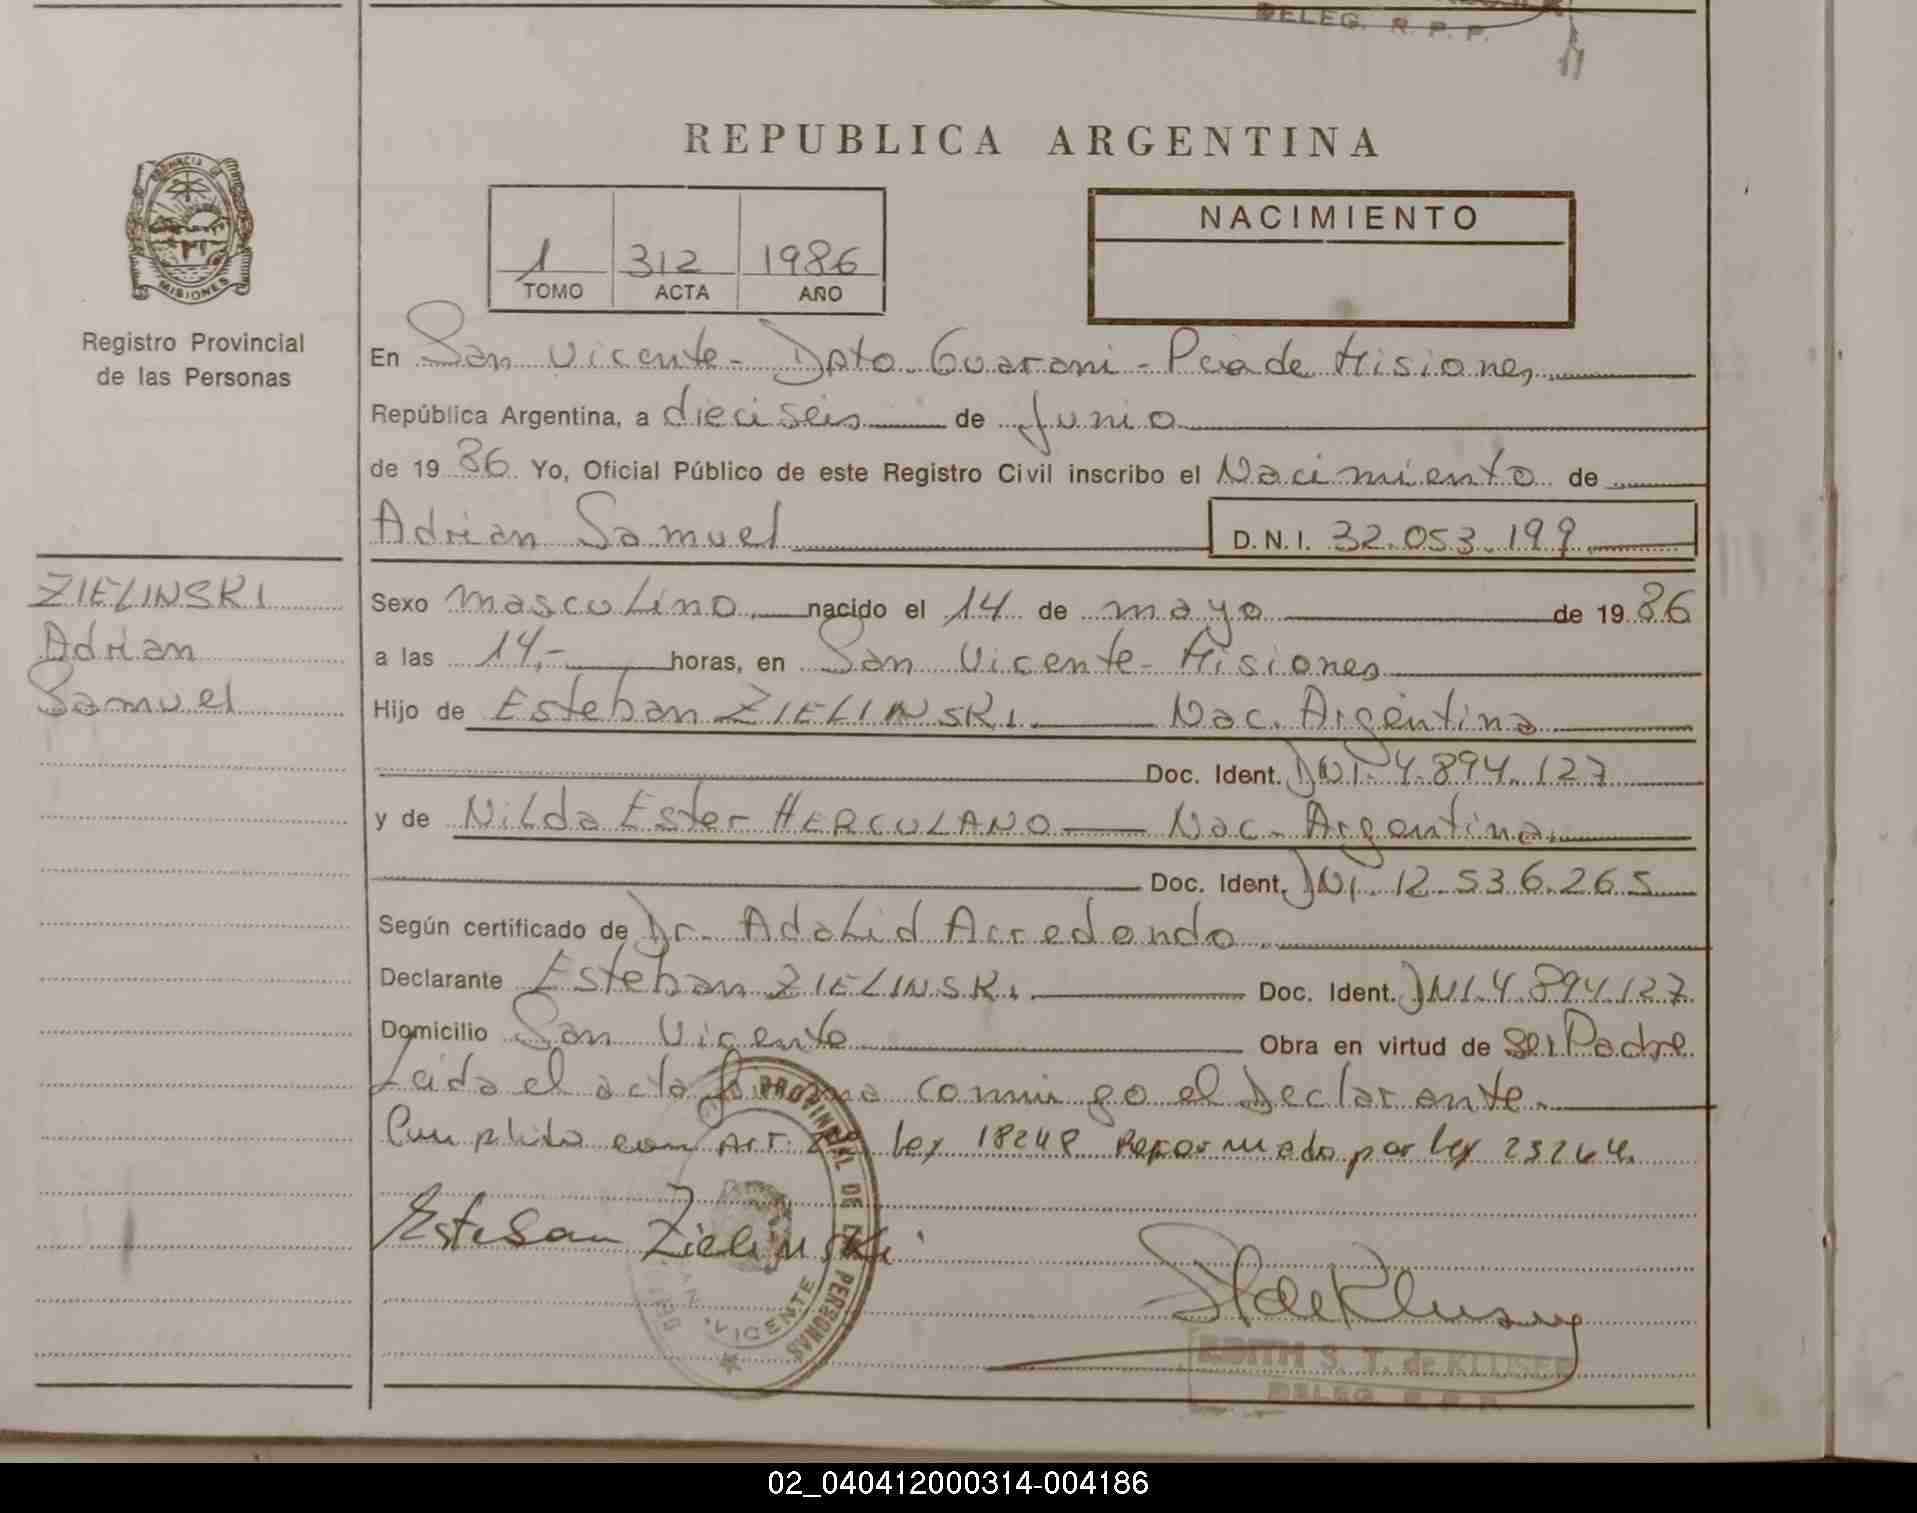 DELEG. R. P. P.
REPUBLICA ARGENTINA
PROVINCIA D
MISIONES
Registro Provincial
de las Personas
1 312 1986
TOMO ACTA AÑO
NACIMIENTO
En San Vicente - Dpto. Guarani - Pcia de Misiones
República Argentina, a dieciseis de Junio
de 19 86 Yo, Oficial Público de este Registro Civil inscribo el Nacimiento de
Adrian Samuel D.N.I. 32.053.199
ZIELINSKI
Adrian
Samuel
Sexo masculino nacido el 14 de mayo de 19 86
a las 14,- horas, en San Vicente - Misiones
Hijo de Esteban ZIELINSKI Nac. Argentina
Doc. Ident. DNI. 4.894.127
y de Nilda Ester HERCULANO Nac. Argentina
Doc. Ident. DNI. 12.536.265
Según certificado de Dr. Adalid Arredondo
Declarante Esteban ZIELINSKI Doc. Ident. DNI. 4.894.127
Domicilio San Vicente Obra en virtud de ser Padre
Leida el acta firma conmigo el Declarante.
Cumplido con Art. 2do Ley 18248 Reformado por Ley 23264.
Esteban Zielinski
PROVINCIAL DE LAS PERSONAS
SAN VICENTE
EDITH S. T. de KLUSER
DELEG. R. P. P.
02_040412000314-004186